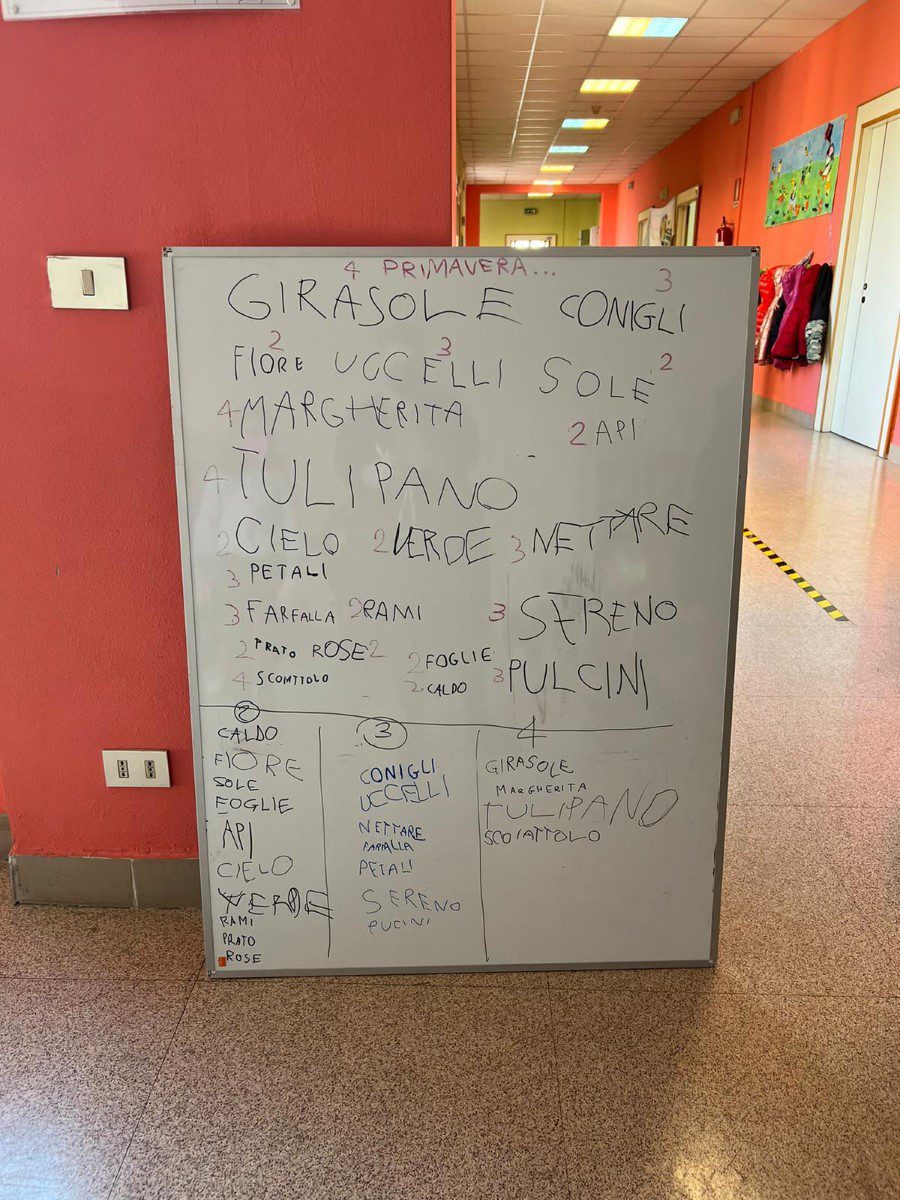 4 PRIMAVERA...
3
GIRASOLE CONIGLI
2 3 2
FIORE UCCELLI SOLE
4 MARGHERITA 2 API
4 TULIPANO
2 CIELO 2 VERDE 3 NETTARE
3 PETALI
3 FARFALLA 2 RAMI 3 SERENO
2 PRATO ROSE 2 2 FOGLIE
4 SCOITTOLO 2 CALDO 3 PULCINI
2 3 4
CALDO
FIORE
SOLE
FOGLIE
API
CIELO
VERDE
RAMI
PRATO
ROSE
CONIGLI
UCCELLI
NETTARE
FARFALLA
PETALI
SERENO
PUCINI
GIRASOLE
MARGHERITA
TULIPANO
SCOIATTOLO